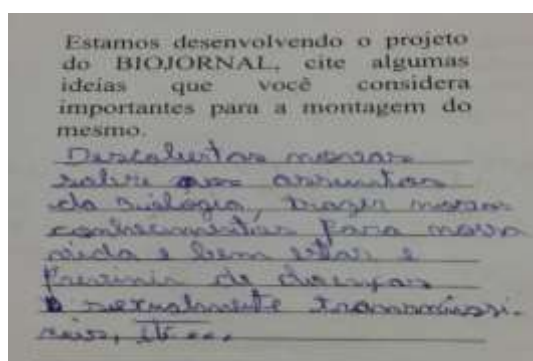 Estamos desenvolvendo o projeto
do BIOJORNAL, cite algumas
ideias que você considera
importantes para a montagem do
mesmo.
Descobertas novas
sobre os assuntos
da biologia, trazer novos
conhecimentos para nossa
vida e bem estar e
Previnir de doenças
sexualmente transmissi-
veis, etc...